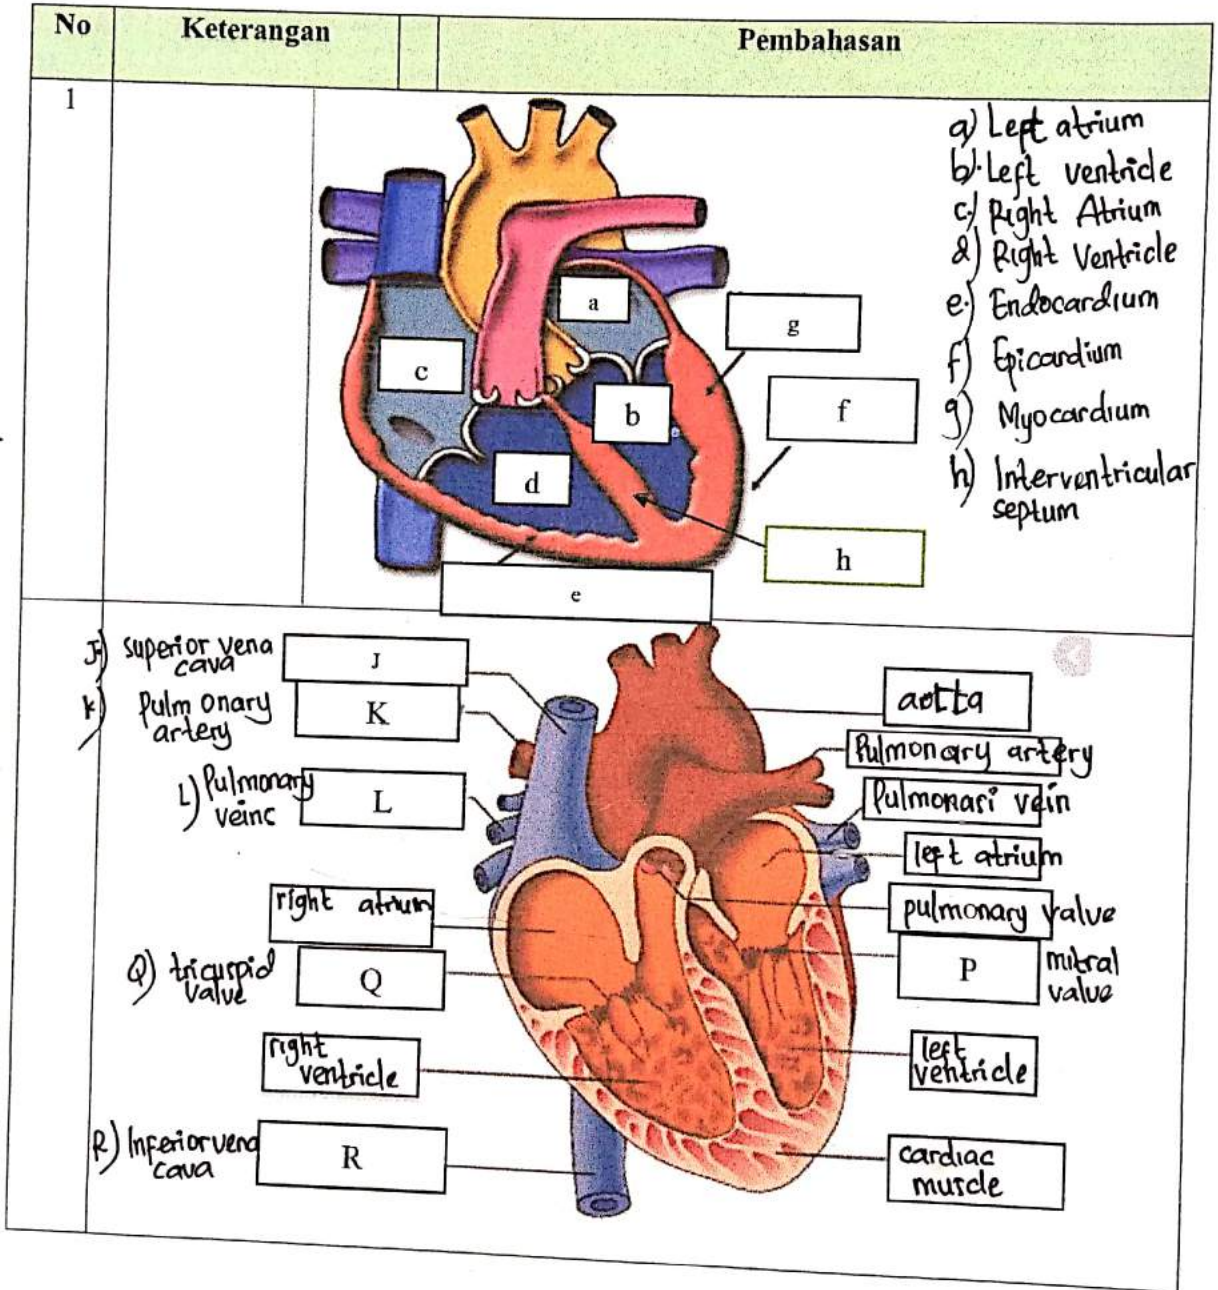 No Keterangan Pembahasan
1
a) Left atrium
b) Left ventricle
c) Right Atrium
d) Right Ventricle
e) Endocardium
f) Epicardium
g) Myocardium
h) Interventricular
septum
a
g
c
f
b
d
h
e
J) superior vena
cava
J
K) Pulmonary
artery
K
L) Pulmonary
veins
L
right atrium
Q) tricuspid
valve
Q
right
ventricle
R) Inferior vena
cava
R
aorta
Pulmonary artery
Pulmonari vein
left atrium
pulmonary valve
P
mitral
valve
left
ventricle
cardiac
muscle